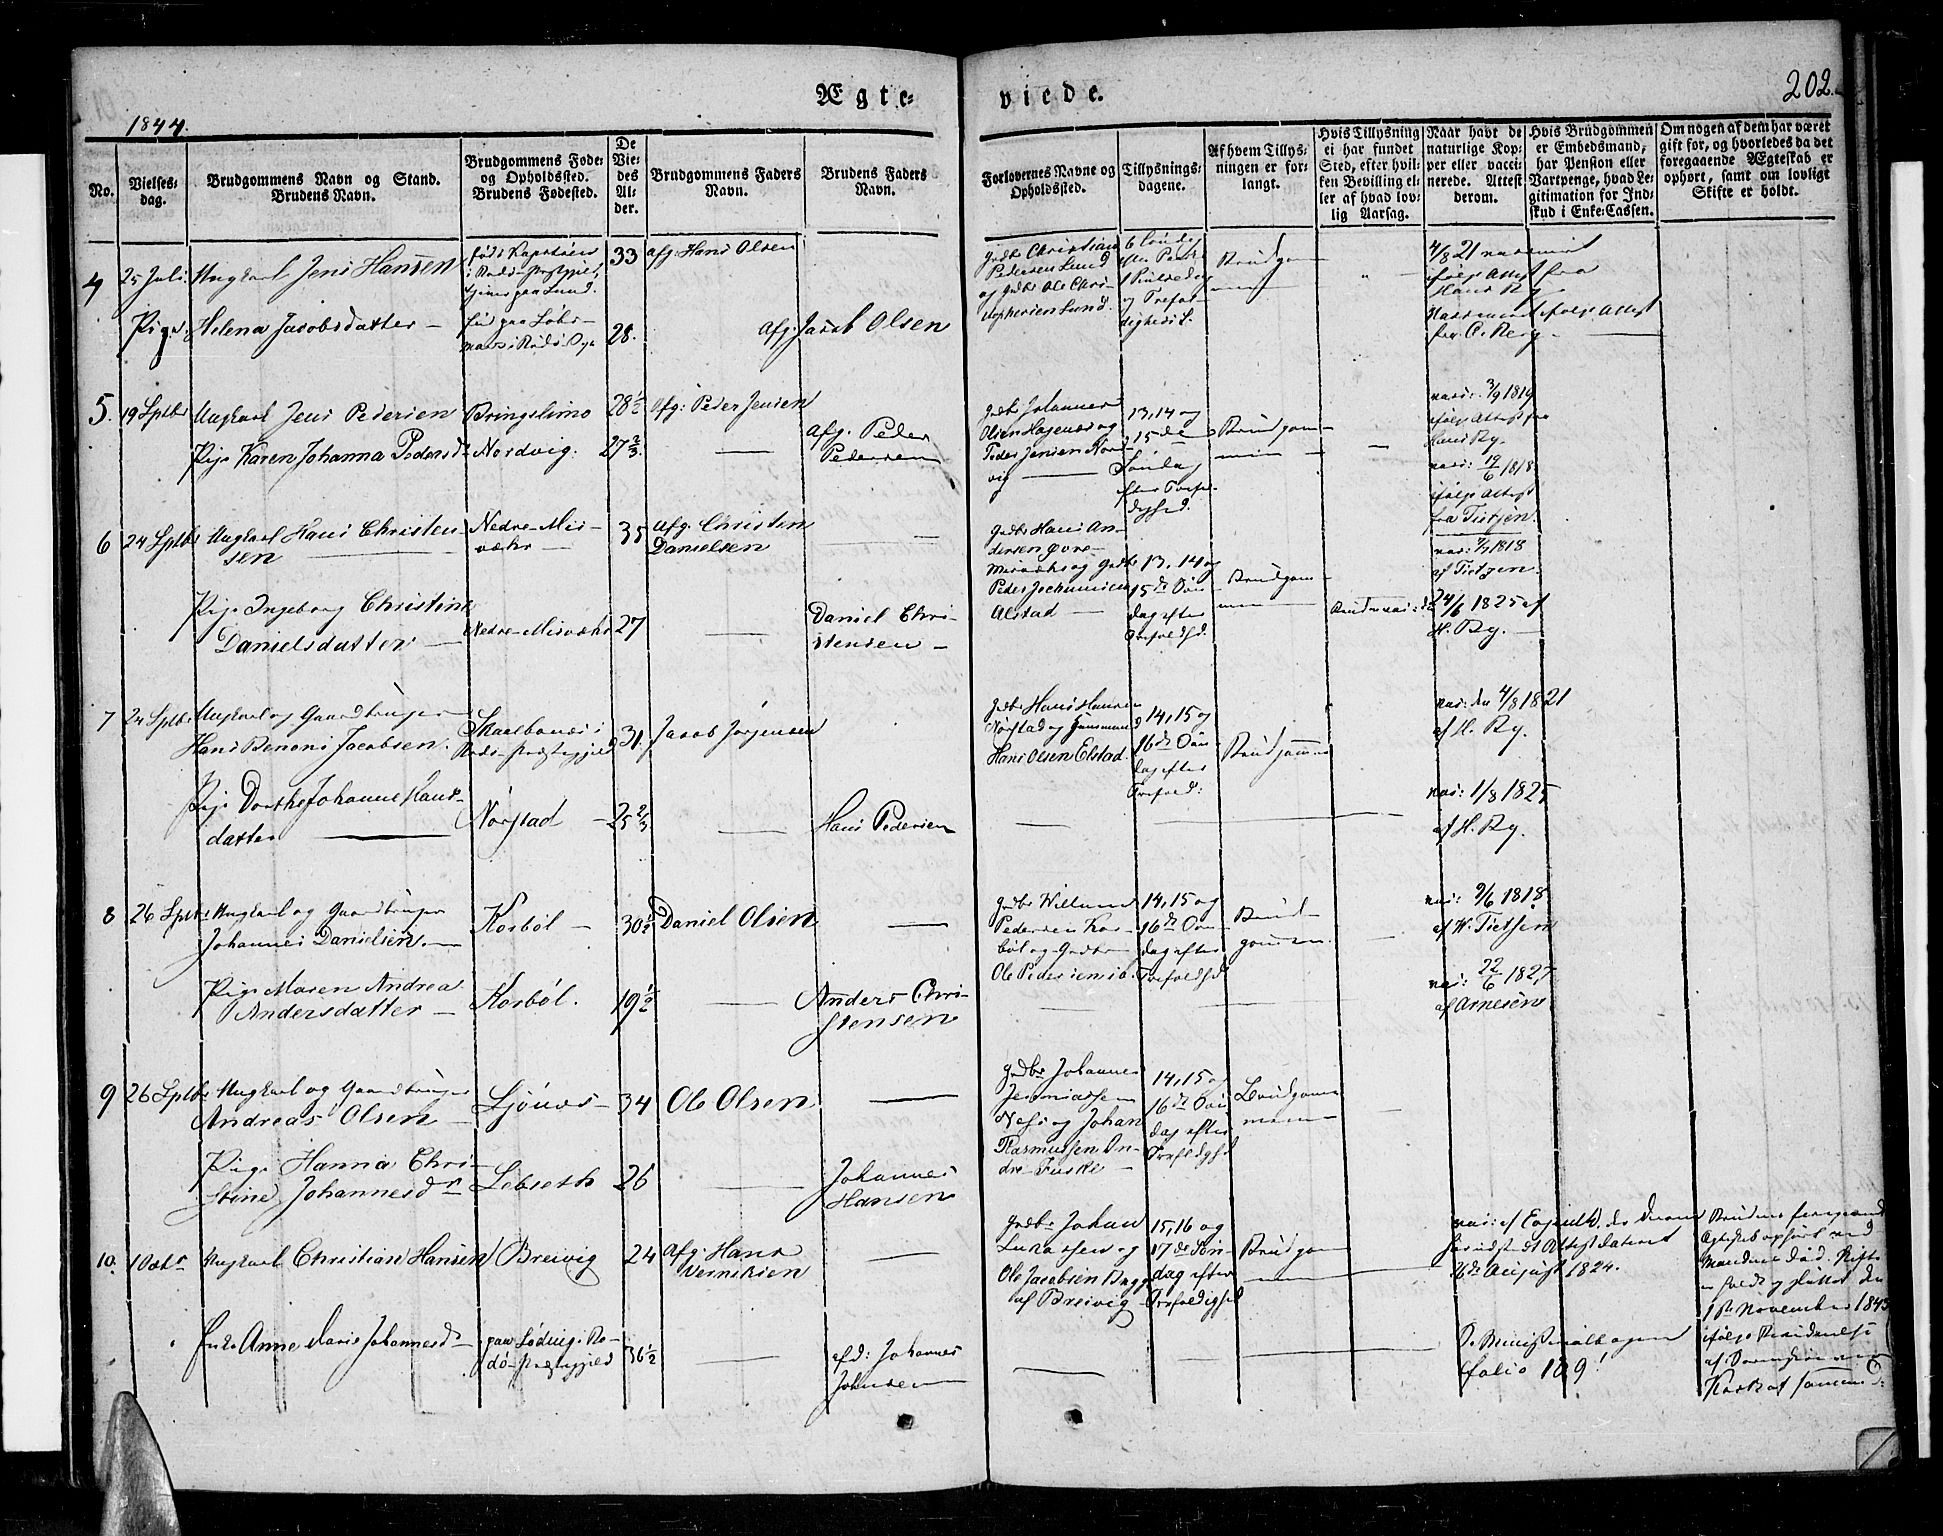 Ægte-
viede.
202.
1844.
No.
Vielses-
dag.
Brudgommens Navn og Stand.
Brudens Navn.
Brudgommens Føde-
og Opholdssted.
Brudens Fødested.
De
Vie-
des
Al-
der.
Brudgommens Faders
Navn.
Brudens Faders
Navn.
Forlovernes Navne og
Opholdssted.
Tillysnings-
dagene.
Af hvem Tillys-
ningen er for-
langt.
Hvis Tillysning
ei har fundet
Sted, efter hvil-
ken Bevilling el-
ler af hvad lov-
lig Aarsag.
Naar havt de
naturlige Kop-
per eller vacci-
nerede. Attest
derom.
Hvis Brudgommen
er Embedsmand,
har Pension eller
Vartpenge, hvad Le-
gitimation for Ind-
skud i Enke-Cassen.
Om nogen af dem har været
gift før, og hvorledes da det
foregaaende Ægteskab er
ophørt, samt om lovligt
Skifte er holdt.
4
25 Juli
Ungkarl Jens Hansen
33
afg. Hans Olsen
Gdbr Christian
Pedersen Lund
og Gdbr Ole Chri-
stophersen Lund.
Brudgom-
men
4/8 21
ifølge Attest fra
Hans Ry
Pige Helena Jacobsdatter
28.
afg. Jacob Olsen
5.
19 Sptbr
Ungkarl Jens Pedersen
Bringslimo
28 1/2
afg: Peder Jensen
Gdbr Johannes
Olsen Hagenæs og
Peder Jensen Nord-
vig
13, 14 og
15de
Søndag
efter Trefol-
dighed.
Brudgom-
men
vacc: 3/9 1819
ifølge Attest fra
Hans Ry.
Pige Karen Johanna Pedersd
Nordvig.
27 2/3.
afg. Peder
Pedersen
vacc: 19/6 1818
ifølge Attest
fra Tietzen.
6
24 Sptbr
Ungkarl Hans Christen-
sen
Nedre-Mis-
vær
35
afg. Christen
Danielsen
Gdbr Hans An-
dersen Øvre-
Misvær og Gdbr
Peder Jochumsen
Alstad
13, 14 og
15de Søn-
dag efter
Trefoldhd.
Brudgom-
men
1818
af Tietzen.
Pige Ingeborg Christina
Danielsdatter
Nedre-Misvær
27
Daniel Chri-
stensen
24/6 1825 af
H. Ry.
7
24 Sptbr
Ungkarl og Gaardbruger
Hans Benoni Jacobsen.
31.
Jacob Jørgensen
Gdbr Hans Hansen
Nørstad og Huusmand
Hans Olsen Elstad.
14, 15 og
16de Søn-
dag efter
Trefold:
Brudgommen
vac: den 4/8 1821
af H. Ry.
Pige Dorthe Johanne Hans-
datter
Nørstad
25 2/3
Hans Pedersen
vac: 1/8 1825
af H. Ry.
8
26 Sptbr
Ungkarl og Gaardbruger
Johannes Danielsen
Korbøl
30 1/2
Daniel Olsen
Gdbr Willum
Pedersen Kor-
bøl og Gdbr
Ole Pedersen
14, 15 og
16de Søn-
dag efter
Trefoldhd
Brud-
gommen
vac: 9/6 1818
af W. Tietzen
Pige Maren Andrea
Andersdatter
Korbøl.
19 1/2
Anders Chri-
stensen
vac: 22/6 1827
af Arnesen
9
26 Sptbr
Ungkarl og Gaardbruger
Andreas Olsen
Ljønes
34
Ole Olsen
Gdbr Johannes
Jeremiassen
Næss og Johan
Rasmussen In-
dre-Fuske
14, 15 og
16de Søn-
dag efter
Trefoldghd
Brudgom-
men
Pige Hanna Chri-
stine Johannesdr
Lebseth
26
Johannes
Hansen
10.
1 Octr
Ungkarl Christian Hansen
Breivig
24
afg: Hans
Gdbr Johan
Lukassen og
Ole Jacobsen
af Breivig
15, 16 og
17de Søn-
dag efter
Trefoldighd
Brudgom-
men
Attest dateret
August 1824.
Brudens foregaaende
Ægteskab ophørt ved
Mandens Død. Skifte
holdt og sluttet den
November 1843
ifølge
Enke Anne Marie Johannesd
paa Løding i Ro-
dø-Præstegjeld
36 1/2
afd: Johannes
Johnsen
Ministerialbogens
folio 109